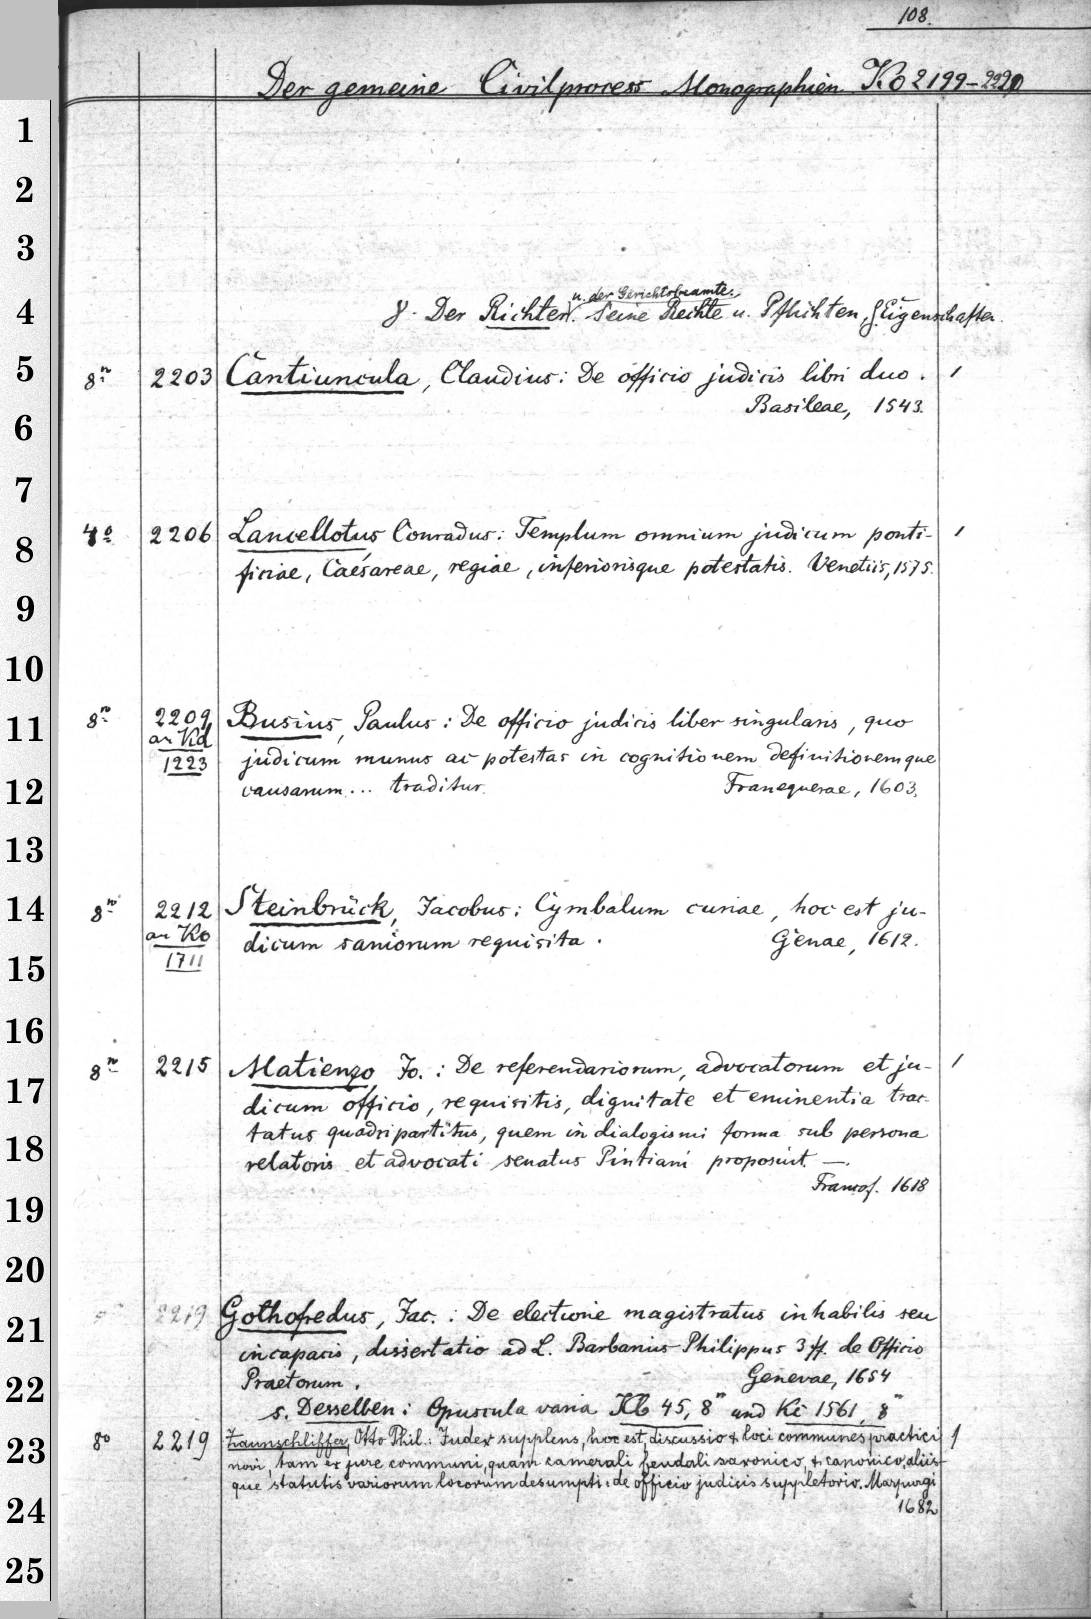 108.
Der gemeine Civilprocess Monographien Ko 2199-2220
1
2
3
u. der Gerichtsbeamte.
4 8. Der Richter. Seine Rechte u. Pflichten, Eigenschaften.
5 8º 2203 Cantiuncula, Claudius: De officio judicis libri duo. 1
Basileae, 1543.
6
7
8 4º 2206 Lancellotus Conradus: Templum omnium judicum ponti- 1
ficiae, Caesareae, regiae, inferiorisque potestatis. Venetiis, 1575.
9
10
11 8º 2209 Busius, Paulus: De officio judicis liber singularis, quo
an Kd judicum munus ac potestas in cognitionem definitionemque
1223
12 causarum... traditur. Franequerae, 1603.
13
14 8º 2212 Steinbrück, Jacobus: Cymbalum curiae, hoc est ju-
an Ko dicum saniorum requisita. Genae, 1612.
15 1711
16
17 8º 2215 Matienzo, Jo.: De referendariorum, advocatorum et ju- 1
dicum officio, requisitis, dignitate et eminentia trac-
18 tatus quadripartitus, quem in dialogismi forma sub persona
relatoris et advocati senatus Pintiani proposuit. —.
19 Francof. 1618
20
21 2219 Gothofredus, Jac.: De electione magistratus inhabilis seu
incapacis, dissertatio ad L. Barbarius Philippus 3 ff. de Officio
22 Praetorum. Genevae, 1654
s. Desselben: Opuscula varia Kb 45, 8º und Ke 1561, 8º
23 8º 2219 Zaunschliffer, Otto Phil.: Judex supplens, hoc est, discussio & loci communes practici 1
novi, tam ex jure communi, quam camerali feudali saxonico, & canonico, aliis-
que statutis variorum locorum desumpti: de officio judicis suppletorio. Marpurgi
24 1682
25